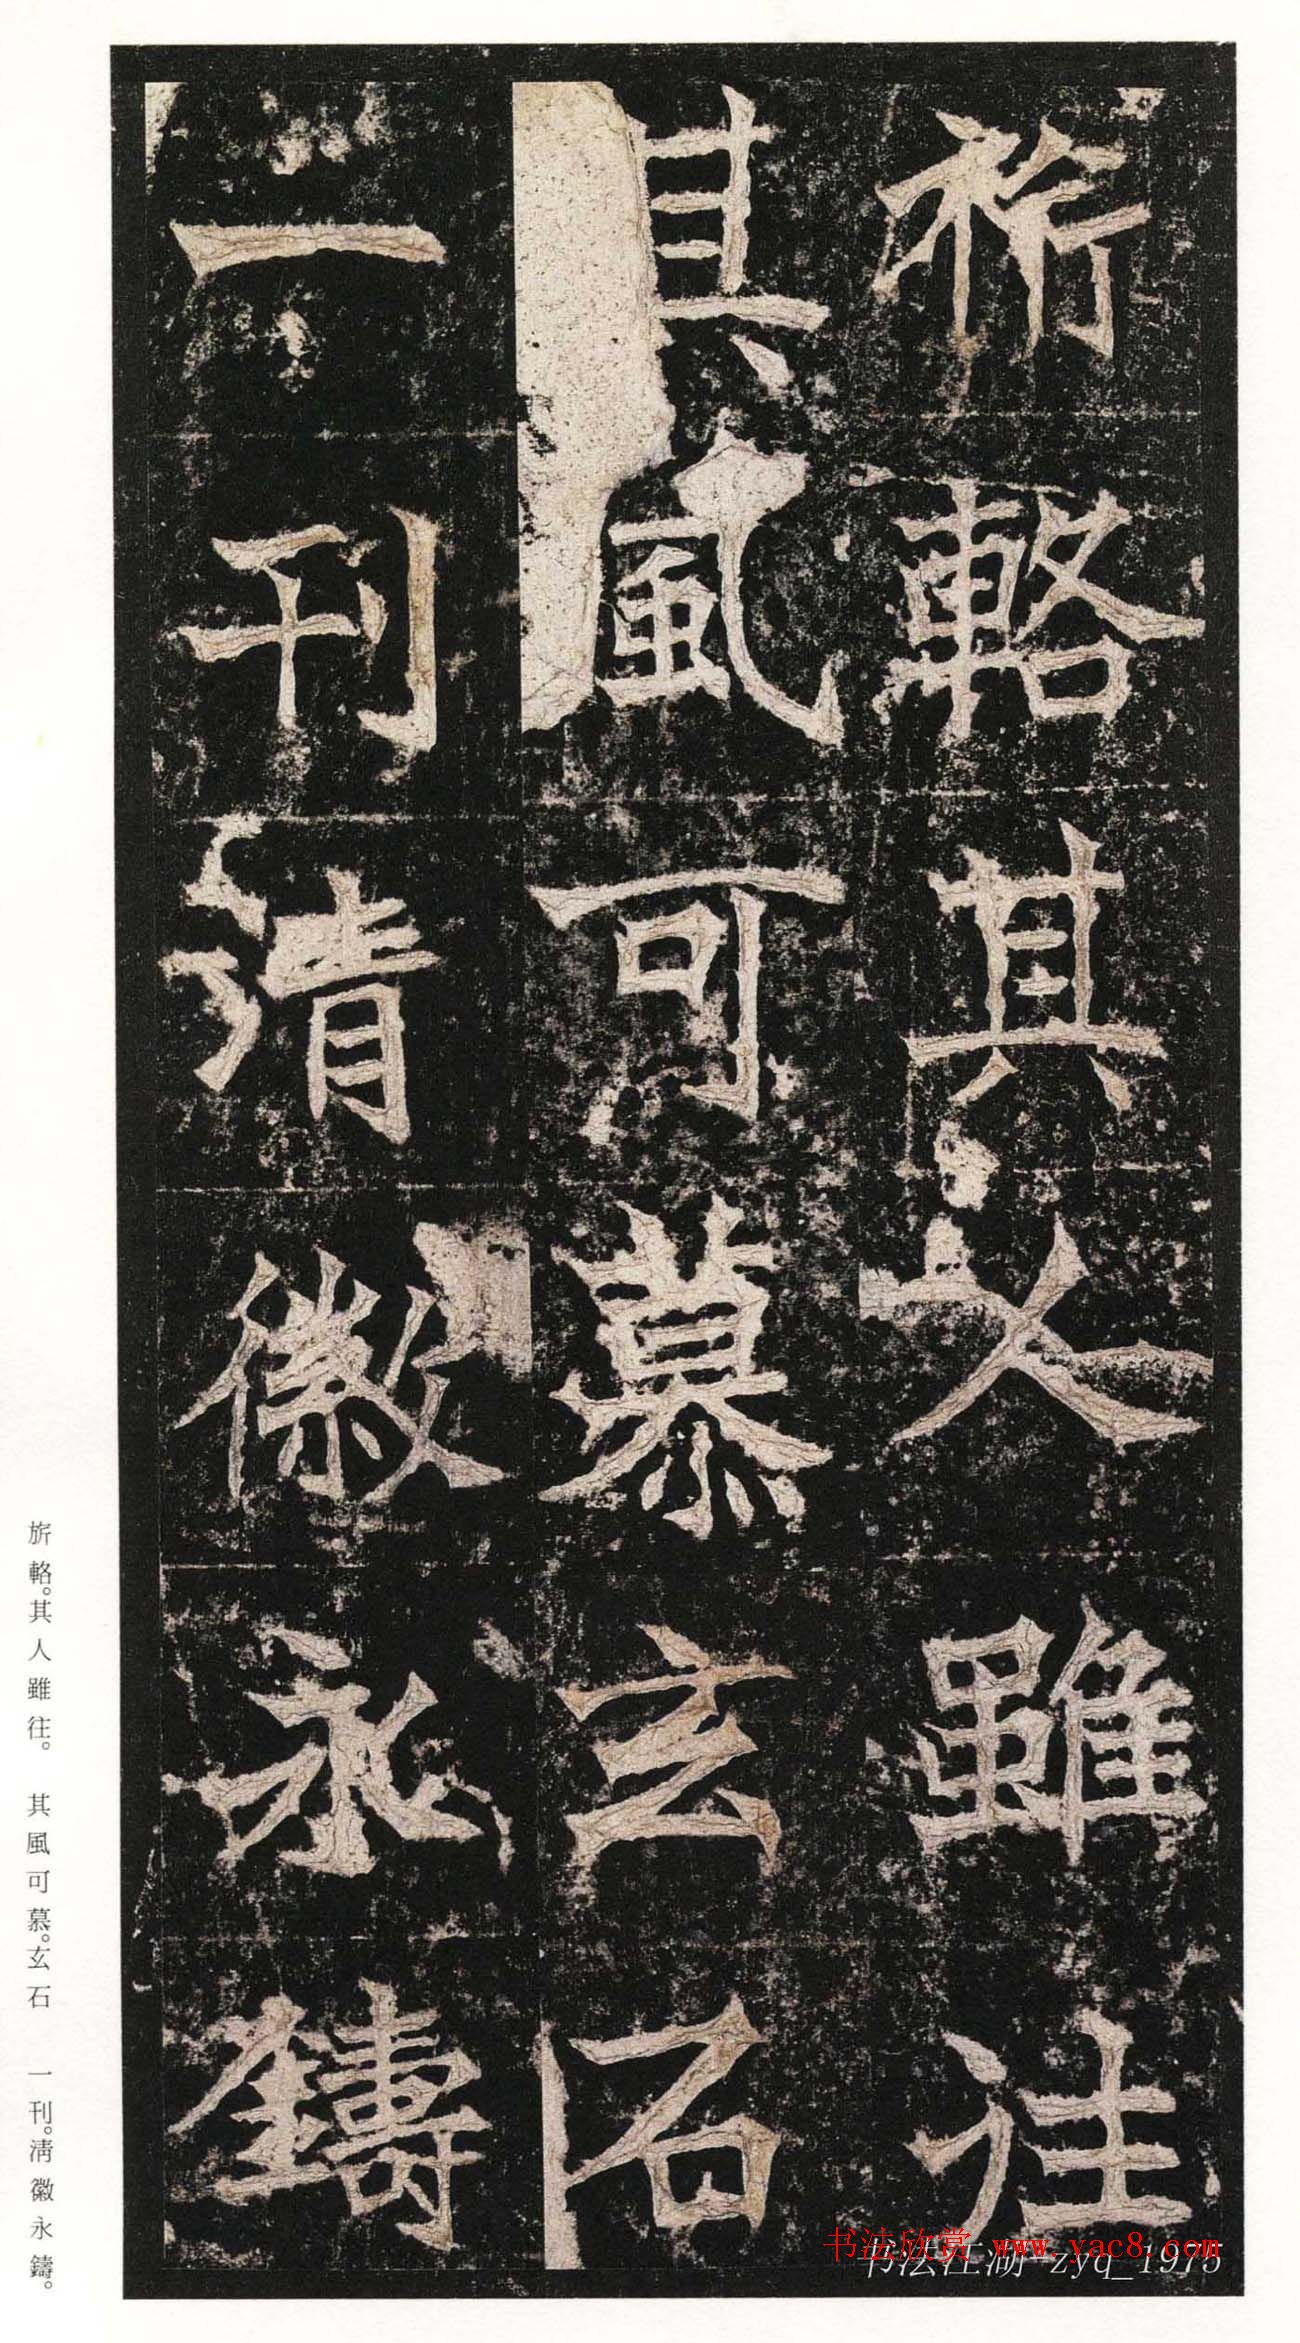 旂輅其人雖往
其風可慕玄石
一刊清徽永鑄
旂輅。其人雖往。　其風可慕。玄石　一刊。清徽永鑄。
书法欣赏 www.yac8.com
书法江湖-zyq_1975